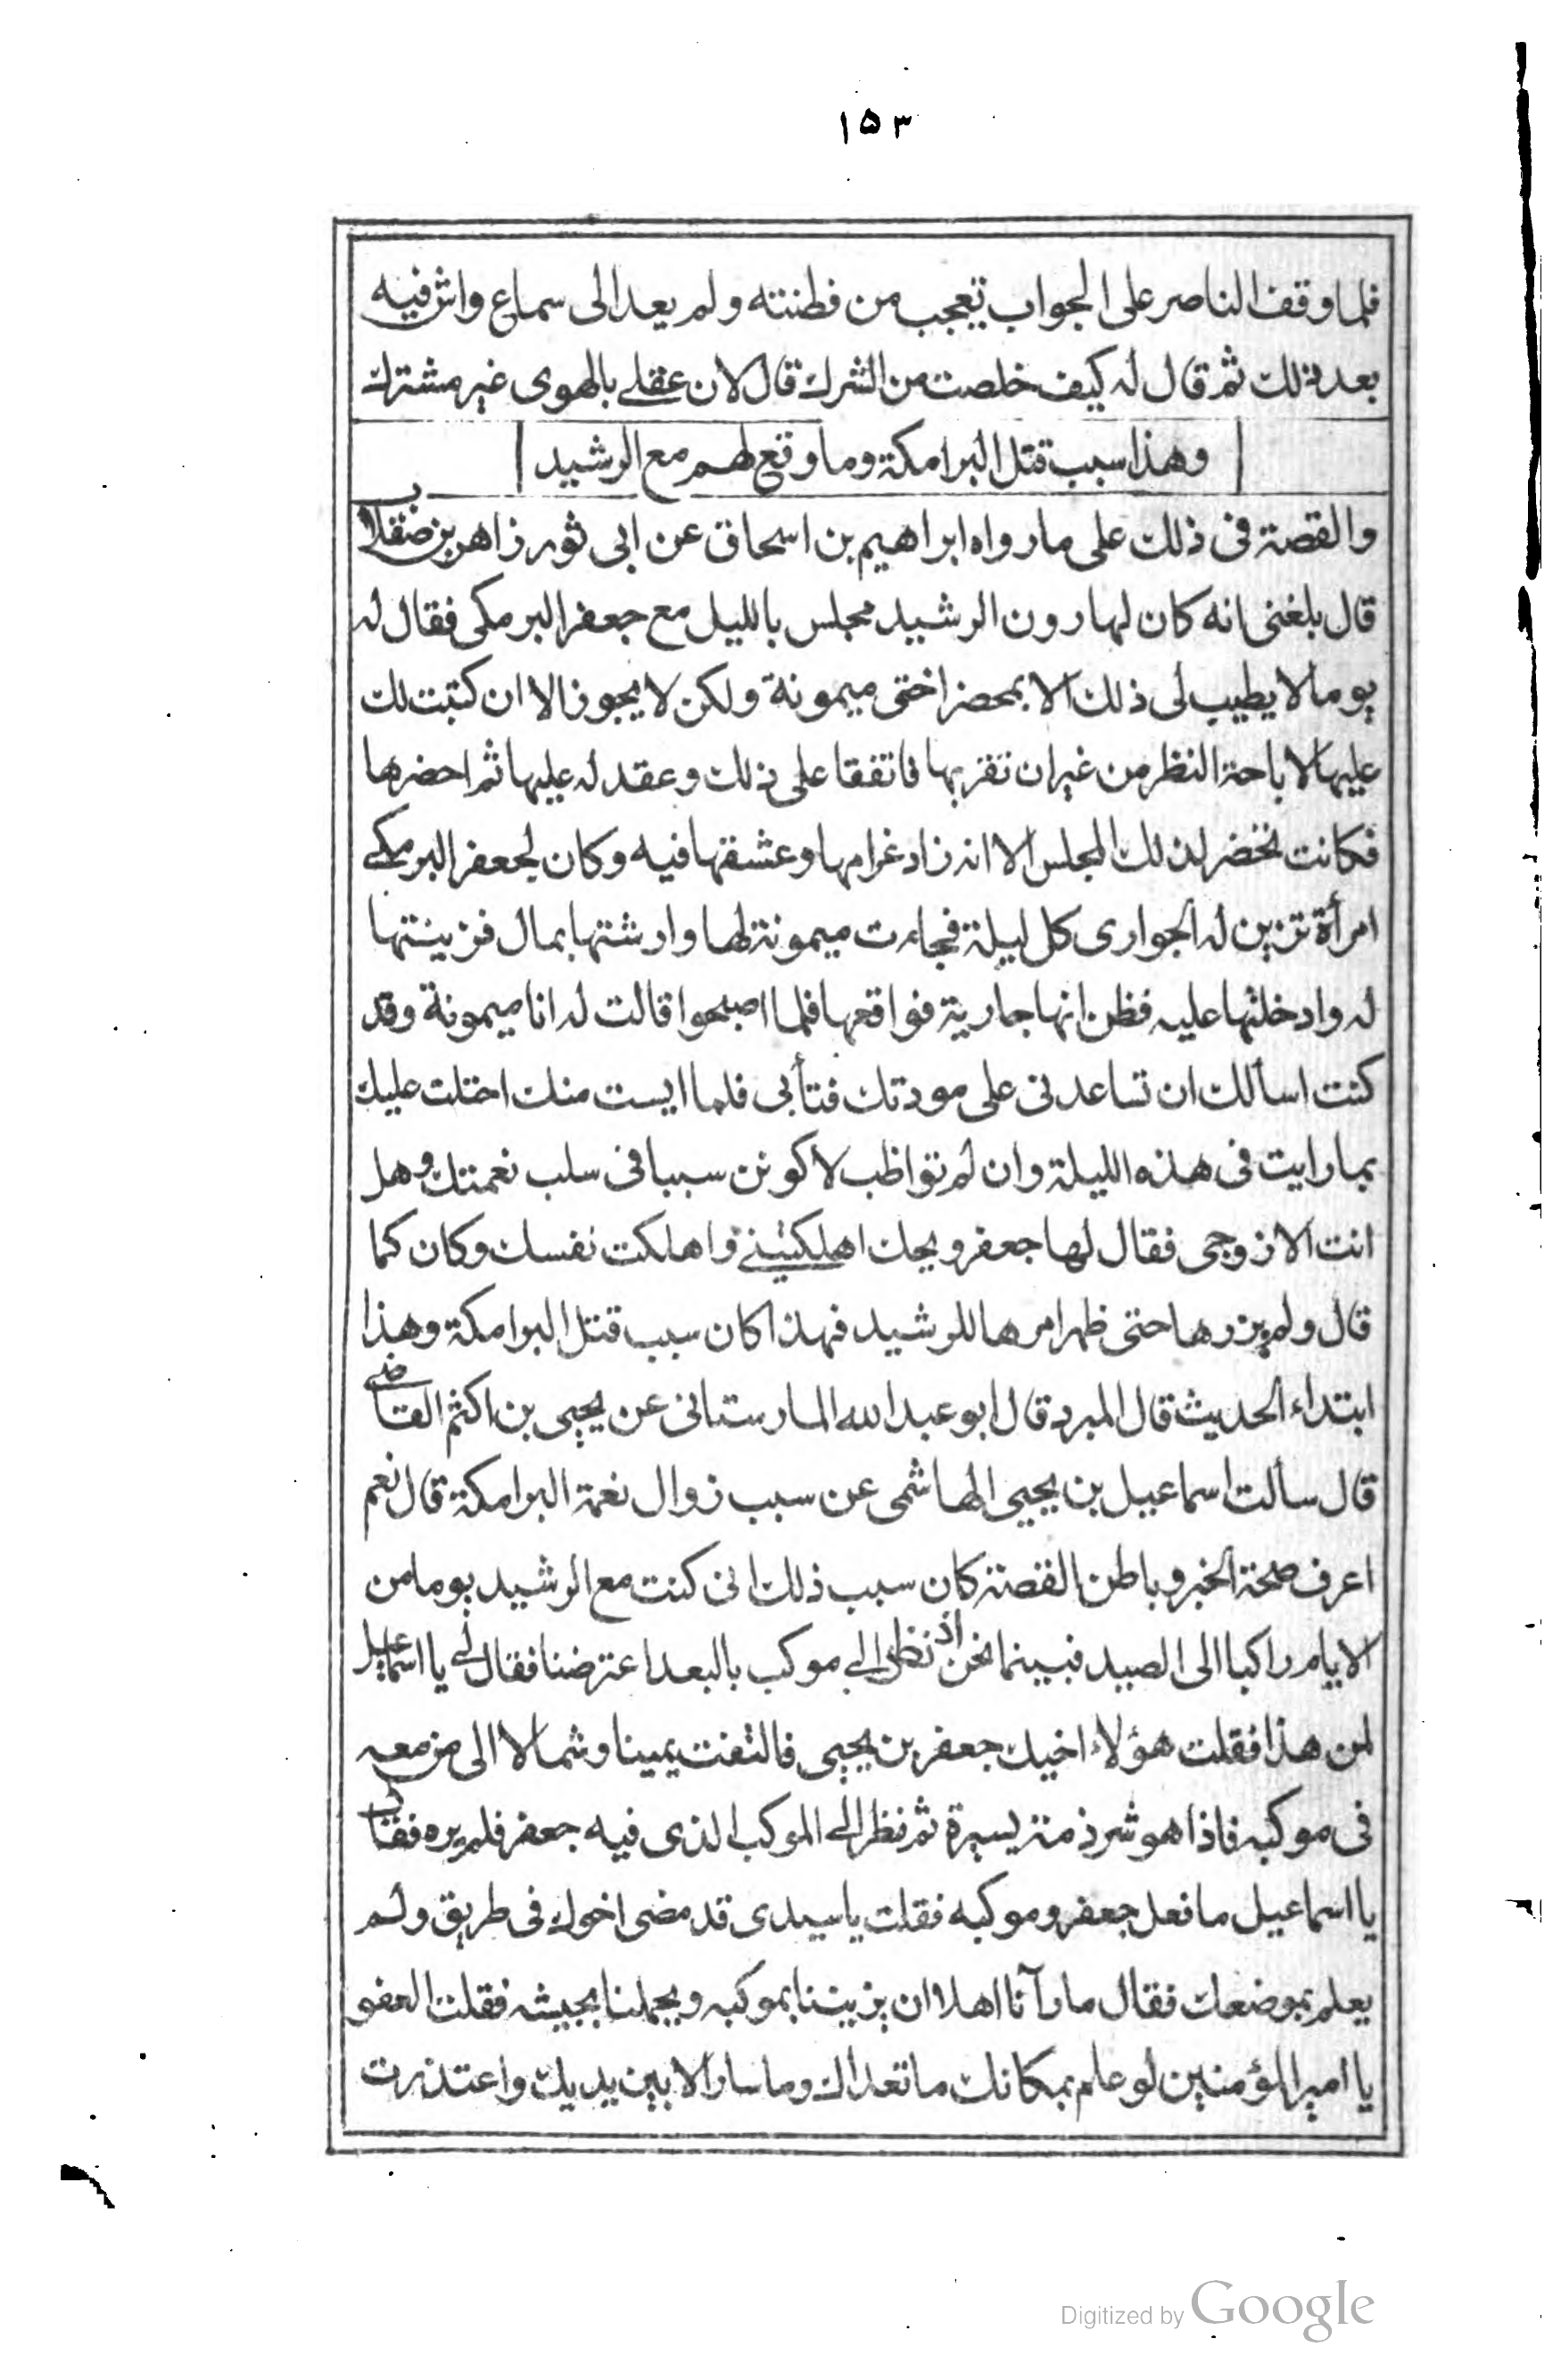 ١٥٣
فلما وقف الناصر على الجواب تعجب من فطنته ولم يعد الى سماع واش فيه
بعد ذلك ثم قال له كيف خلصت من الشرك قال لان عقلي بالهوى غير مشترك
وهذا سبب قتل البرامكة وما وقع لهم مع الرشيد
والقصة فى ذلك على ما رواه ابراهيم بن اسحاق عن ابى ثور زاهر بن صقلاب
قال بلغنى انه كان لهارون الرشيد مجلس بالليل مع جعفر البرمكى فقال له
يوما لا يطيب لى ذلك الا بمحضر اختى ميمونة ولكن لا يجوز الا ان كتبت لك
عليها لاباحة النظر من غير ان تقربها فاتفقا على ذلك وعقد له عليها ثم احضرها
فكانت تحضر لذلك المجلس الا انه زاد غرامها وعشقها فيه وكان لجعفر البرمكي
امرأة تزين له الجوارى كل ليلة فجاءت ميمونة لها وارشتها بمال فزينتها
له وادخلتها عليه فظن انها جارية فواقعها فلما اصبحوا قالت له انا ميمونة وقد
كنت اسألك ان تساعدنى على مودتك فتأبى فلما ايست منك احتلت عليك
بما رايت فى هذه الليلة وان لم تواظب لاكونن سببا فى سلب نعمتك وهل
انت الا زوجى فقال لها جعفر ويحك اهلكتيني واهلكت نفسك وكان كما
قال ولم يزرها حتى ظهر امرها للرشيد فهذا كان سبب قتل البرامكة وهذا
ابتداء الحديث قال المبرد قال ابو عبد الله المارستانى عن يحيى بن اكثم القاضي
قال سألت اسماعيل بن يحيى الهاشمى عن سبب زوال نعمة البرامكة قال نعم
اعرف صحة الخبر وباطن القصة كان سبب ذلك انى كنت مع الرشيد يوما من
الايام راكبا الى الصيد فبينما نحن اذ نظر الي موكب بالبعد اعترضنا فقال لي يا اسماعيل
لمن هذا فقلت هؤلاء اخيك جعفر بن يحيى فالتفت يمينا وشمالا الى من معه
فى موكبه فاذا هو شرذمة يسيرة ثم نظر الي الموكب الذى فيه جعفر فلم يره فقال
يا اسماعيل ما فعل جعفر وموكبه فقلت يا سيدى قد مضى اخوك فى طريق ولم
يعلم بموضعك فقال ما رآنا اهلا ان يزيننا بموكبه ويجملنا بجيشه فقلت العفو
يا امير المؤمنين لو علم بمكانك ما تعداك وما سار الا بين يديك واعتذرت
Digitized by Google